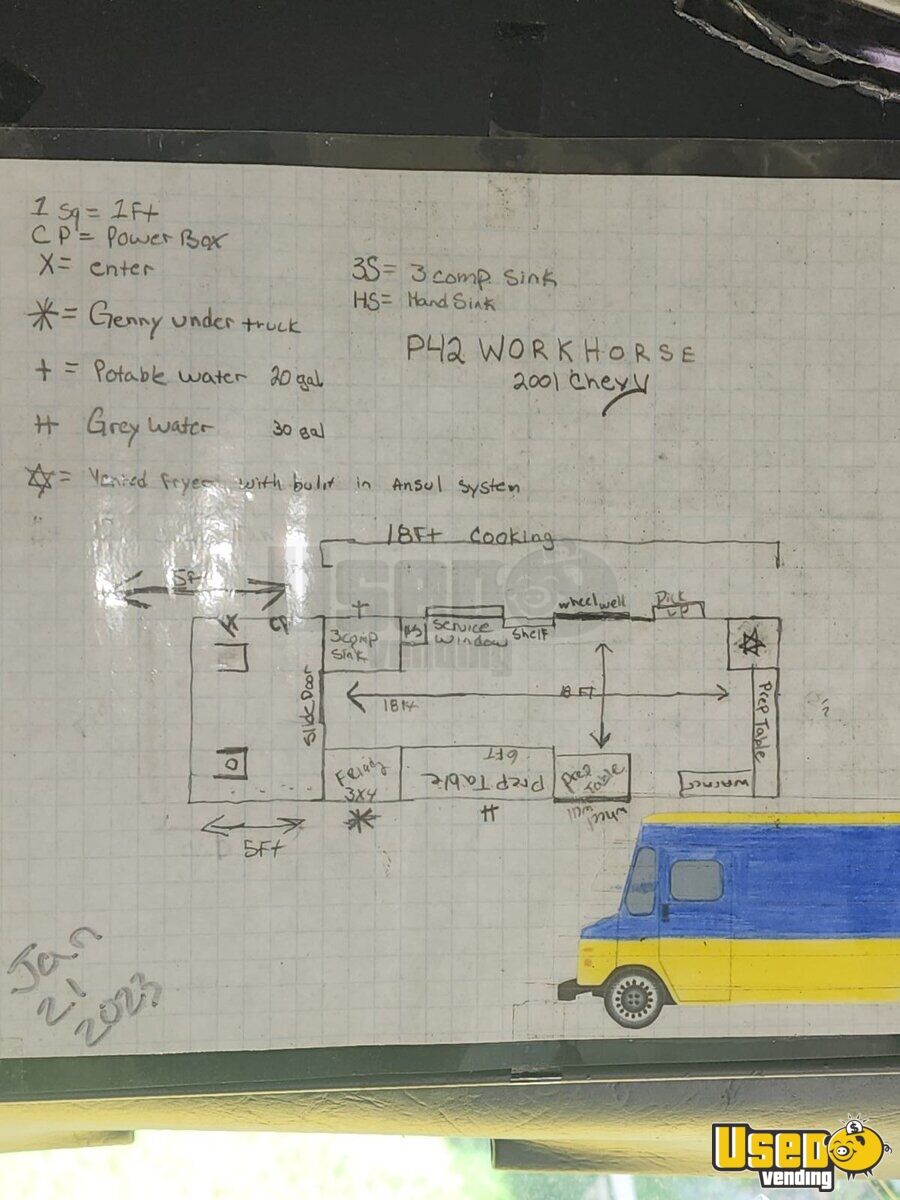 1 Sq = 1Ft
CP = Power Box
X = enter
3S = 3 comp. Sink
HS = Hand Sink
* = Genny under truck
P42 WORKHORSE
2001 Chevy
+ = Potable water 20 gal
H Grey Water 30 gal
= Vented Fryer with built in Ansul System
18Ft Cooking
5F
+
X
CP
3comp
Sink
HS
Service
Window
Shelf
wheel well
Pick
UP
Slide Door
18Ft
8 FT
Prep Table
Fridg
3x4
Prep Table
6FT
Prep
Table
wheel
well
warmer
*
H
5Ft
Jan
21
2023
USED
vending
USED
vending